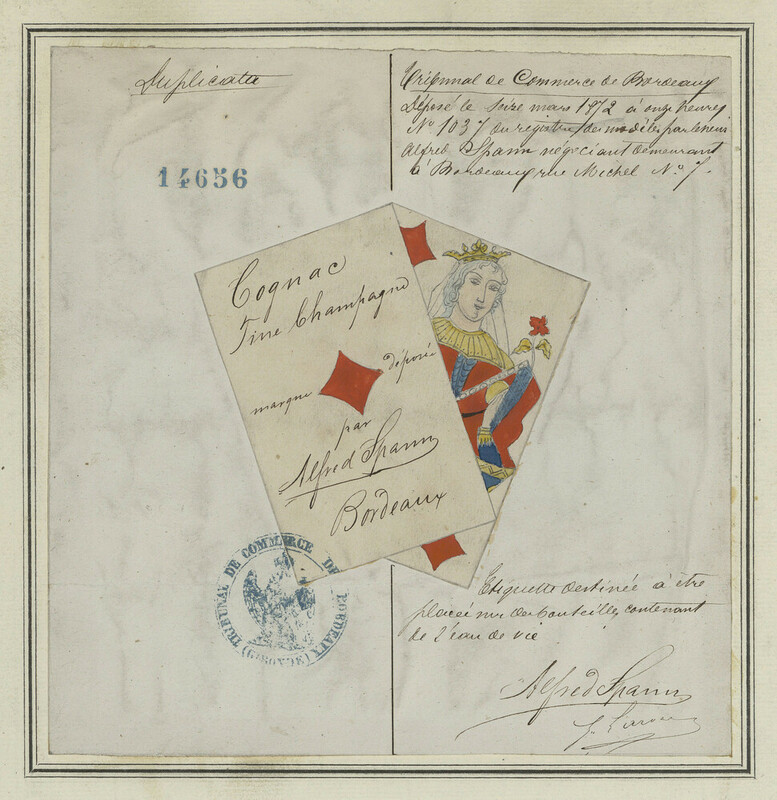 Duplicata
14656
Tribunal de Commerce de Bordeaux
Déposé le seize mars 1872 à onze heures
No 1037 du registre des modèles par le sieur
Alfred Spann négociant demeurant
à Bordeaux rue Michel No 7.
Cognac
Fine Champagne
marque déposée
par
Alfred Spann
Bordeaux
TRIBUNAL DE COMMERCE DE BORDEAUX
(GIRONDE)
Etiquette destinée à être
placée sur des bouteilles contenant
de l'eau de vie
Alfred Spann